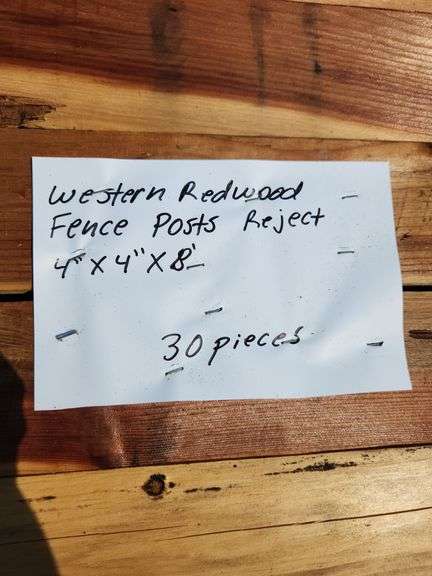 Western Redwood
Fence Posts Reject
4" X 4" X 8'
30 pieces